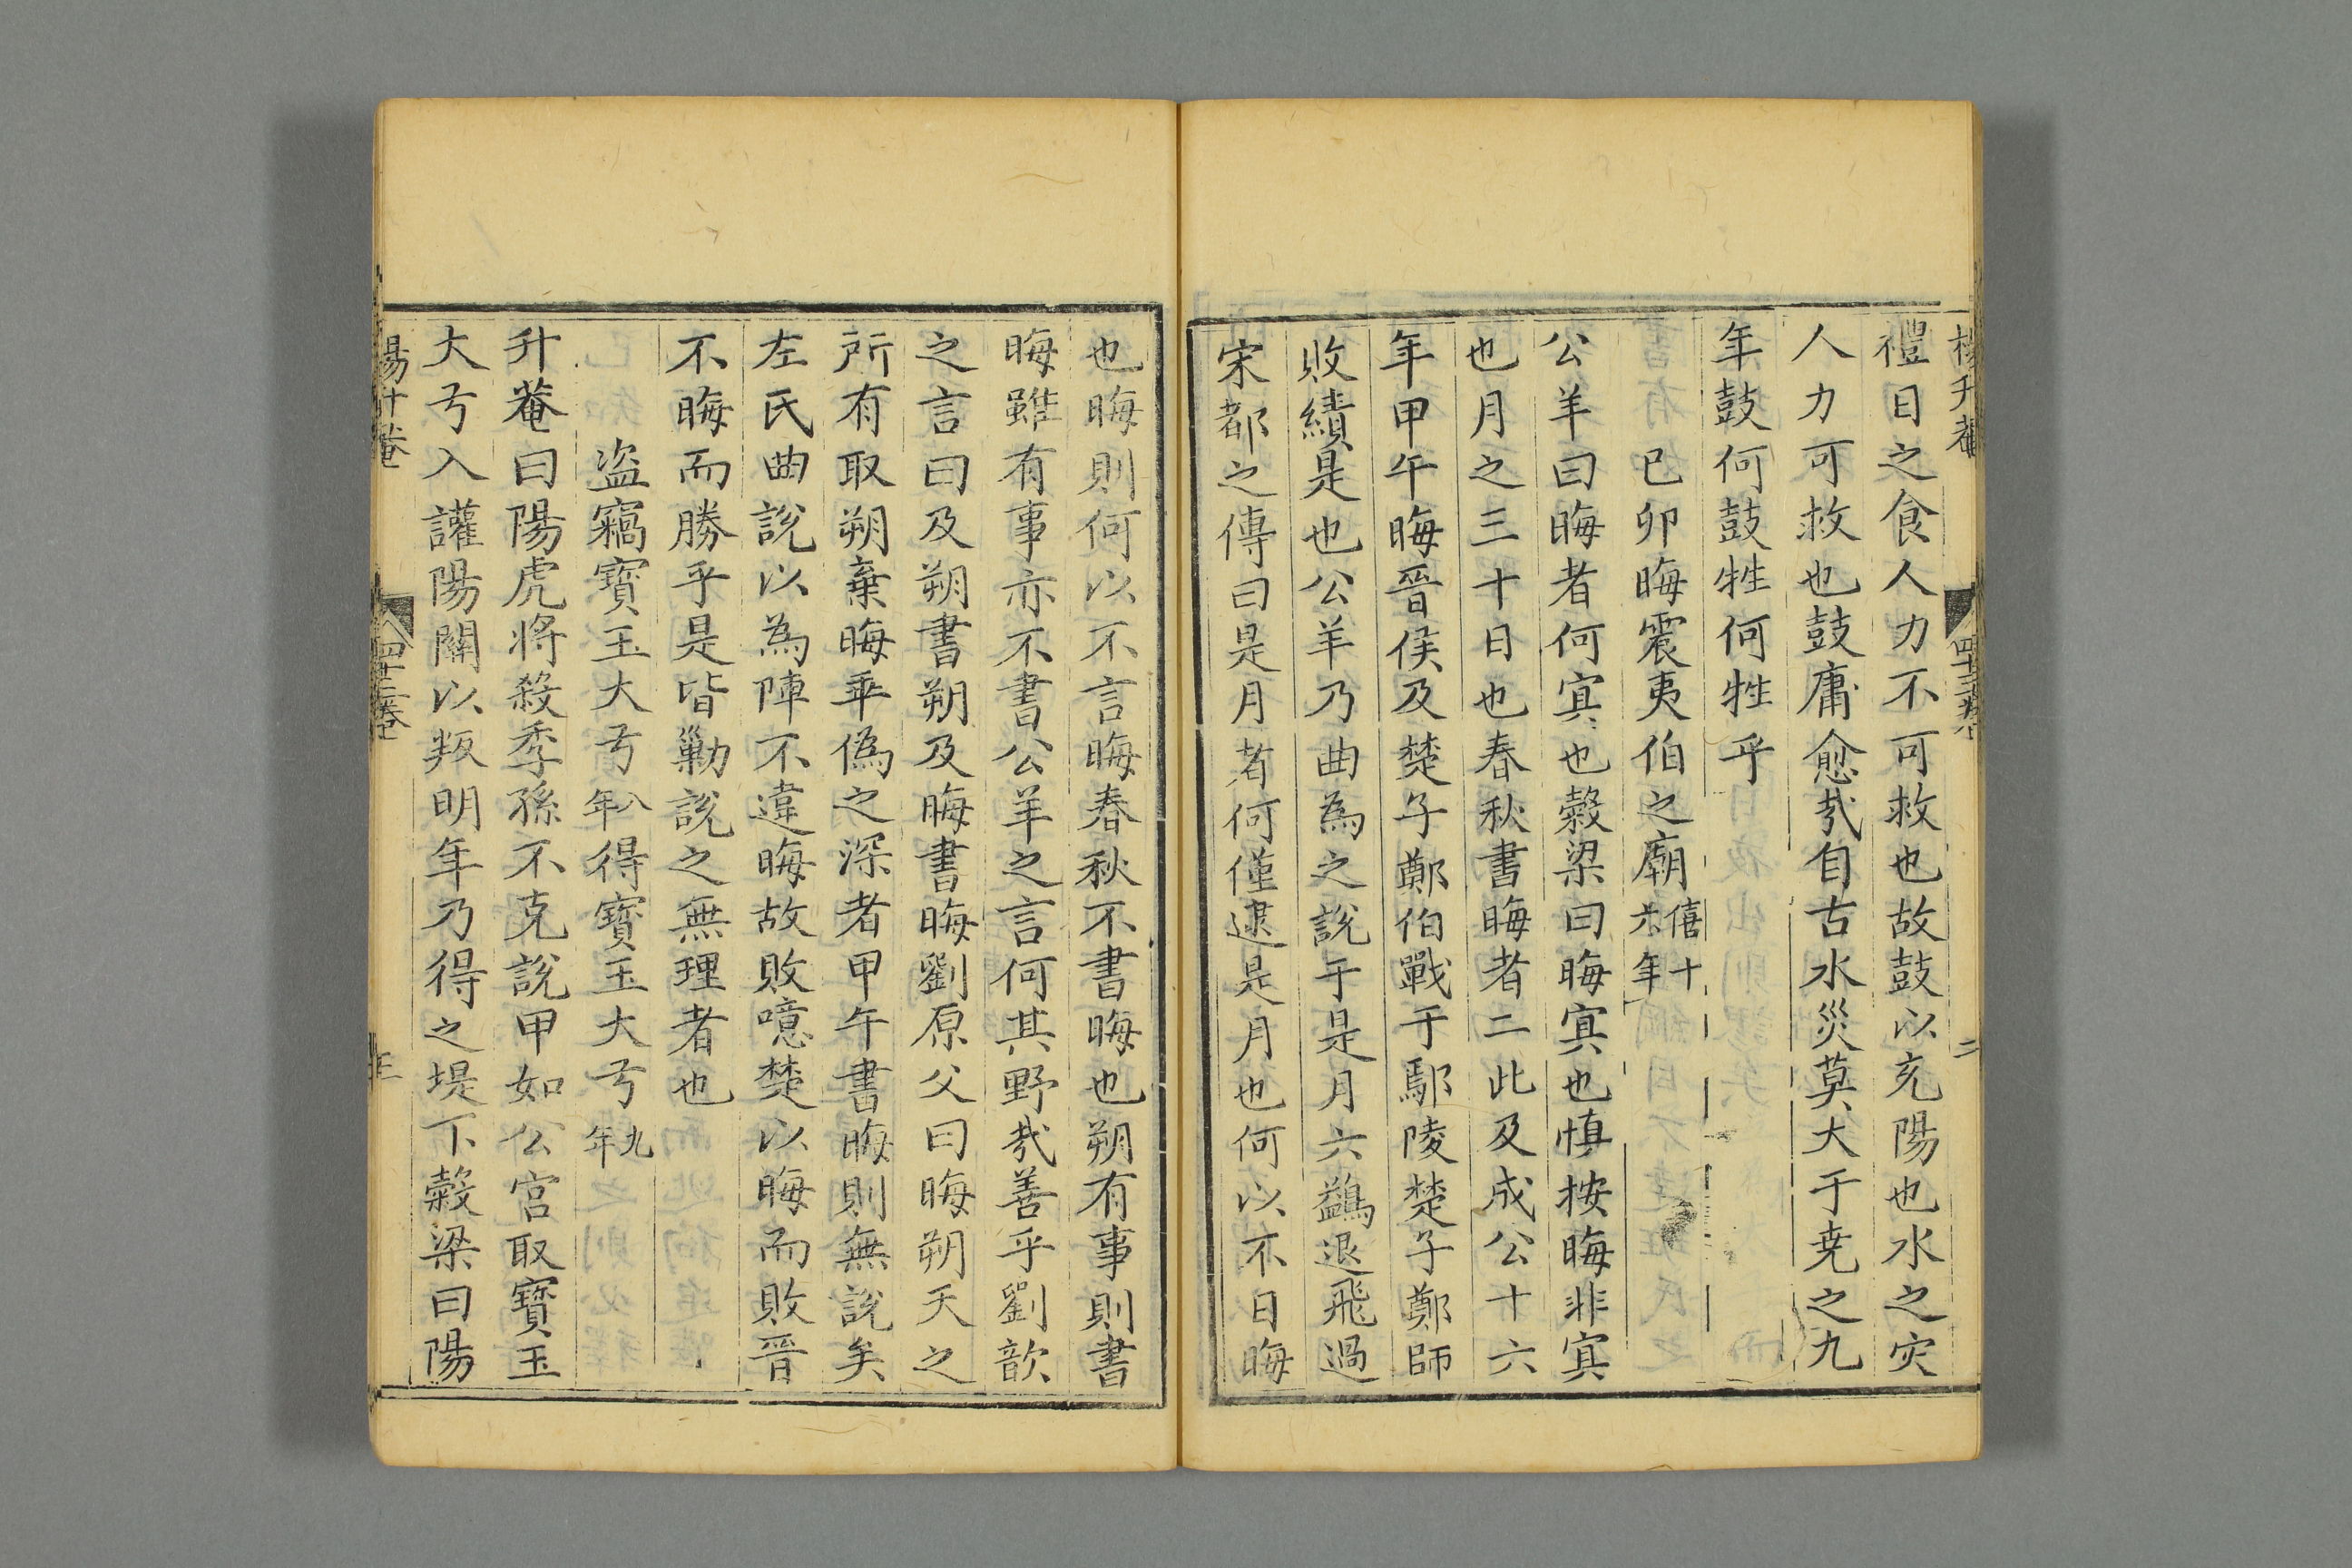 楊升菴 四十三卷 二
禮日之食人力不可救也故鼓以充陽也水之灾
人力可救也鼓庸愈㢤自古水災莫大于尭之九
年鼓何鼓牲何牲乎
己卯晦震夷伯之廟僖十六年
公羊曰晦者何㝠也榖梁曰晦㝠也慎按晦非㝠
也月之三十日也春秋書晦者二此及成公十六
年甲午晦晉侯及楚子鄭伯戰于鄢陵楚子鄭師
敗績是也公羊乃曲為之說于是月六鷁退飛過
宋都之傳曰是月者何僅逮是月也何以不日晦
也晦則何以不言晦春秋不書晦也朔有事則書
晦雖有事亦不書公羊之言何其野㢤善乎劉歆
之言曰及朔書朔及晦書晦劉原父曰晦朔天之
所有取朔棄晦乖僞之深者甲午書晦則無說矣
左氏曲說以為陣不違晦故敗噫楚以晦而敗晉
不晦而勝乎是皆勦說之無理者也
盜竊寶玉大弓八年得寶玉大弓九年
升菴曰陽虎將殺季孫不克說甲如公宮取寶玉
大弓入讙陽關以叛明年乃得之堤下榖梁曰陽
楊升菴 四十三卷 三